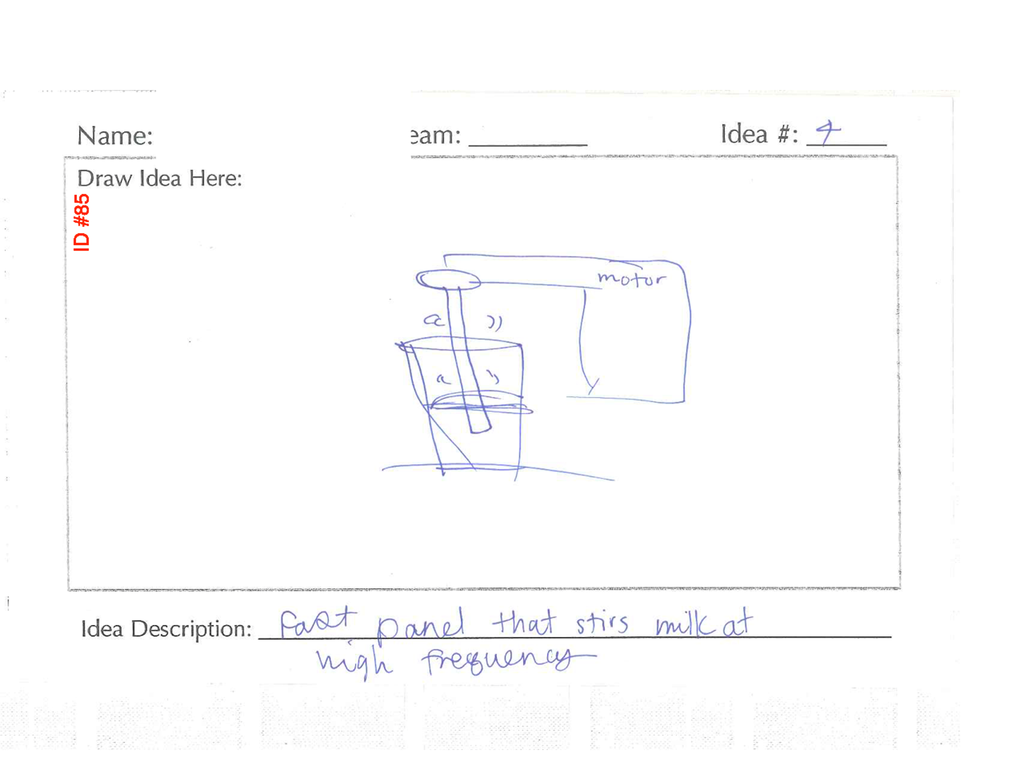 Name:
eam:
Idea #: 4
Draw Idea Here:
ID #85
motor
Idea Description: Fast panel that stirs milk at
high frequency